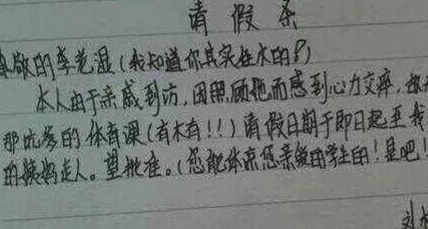 请假条
敬的李老湿(我知道你其实桂木的?)
本人由于亲戚到访,因照顾她而感到心力交瘁,故
那优秀的体育课(有木有!!)请假日期于即日起至我
的姨妈走人。望批准。(您能体谅您亲爱的学生的!是吧!
刘